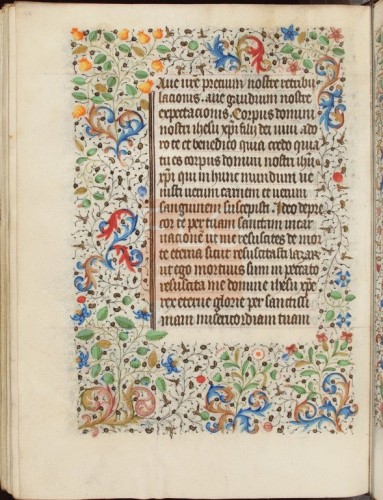 Aue ure precium nostre retribu
lacionis. aue gaudium nostre
expectacionis. Corpus domini
nostri ihesu xpi filij dei viui. ado
ro te et benedico quia credo quia
tu es corpus domini nostri ihu
xpi qui in hunc mundum ue
nisti uerum carnem et uerum
sanguinem suscepisti. Ideo depre
cor te per tuam sanctam incar
nacionē ut me resuscites de mor
te eterna sicut resuscitasti lazarū
ut ego mortuus sum in peccato
resuscita me domine ihesu xpe
rex eterne glorie per sanctissi
mam misericordiam tuam